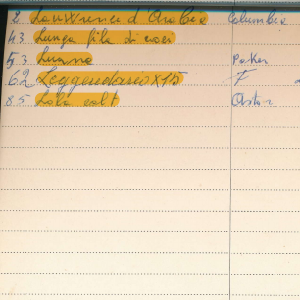 2 Lawrence d'Arabia Columbia
43 Lunga fila di croci
53 Luana Parker
62 Leggendario X15 F
85 Lola colt Astor